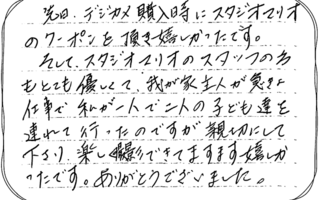 先日、デジカメ購入時にスタジオマリオ
のクーポンを頂き嬉しかったです。
そして、スタジオマリオのスタッフの方
もとても優しくて、我が家主人が急きょ
仕事で私が一人で二人の子ども達を
連れて行ったのですが親切にして
下さり、楽しく撮影できてますます嬉しか
ったです。ありがとうございました。